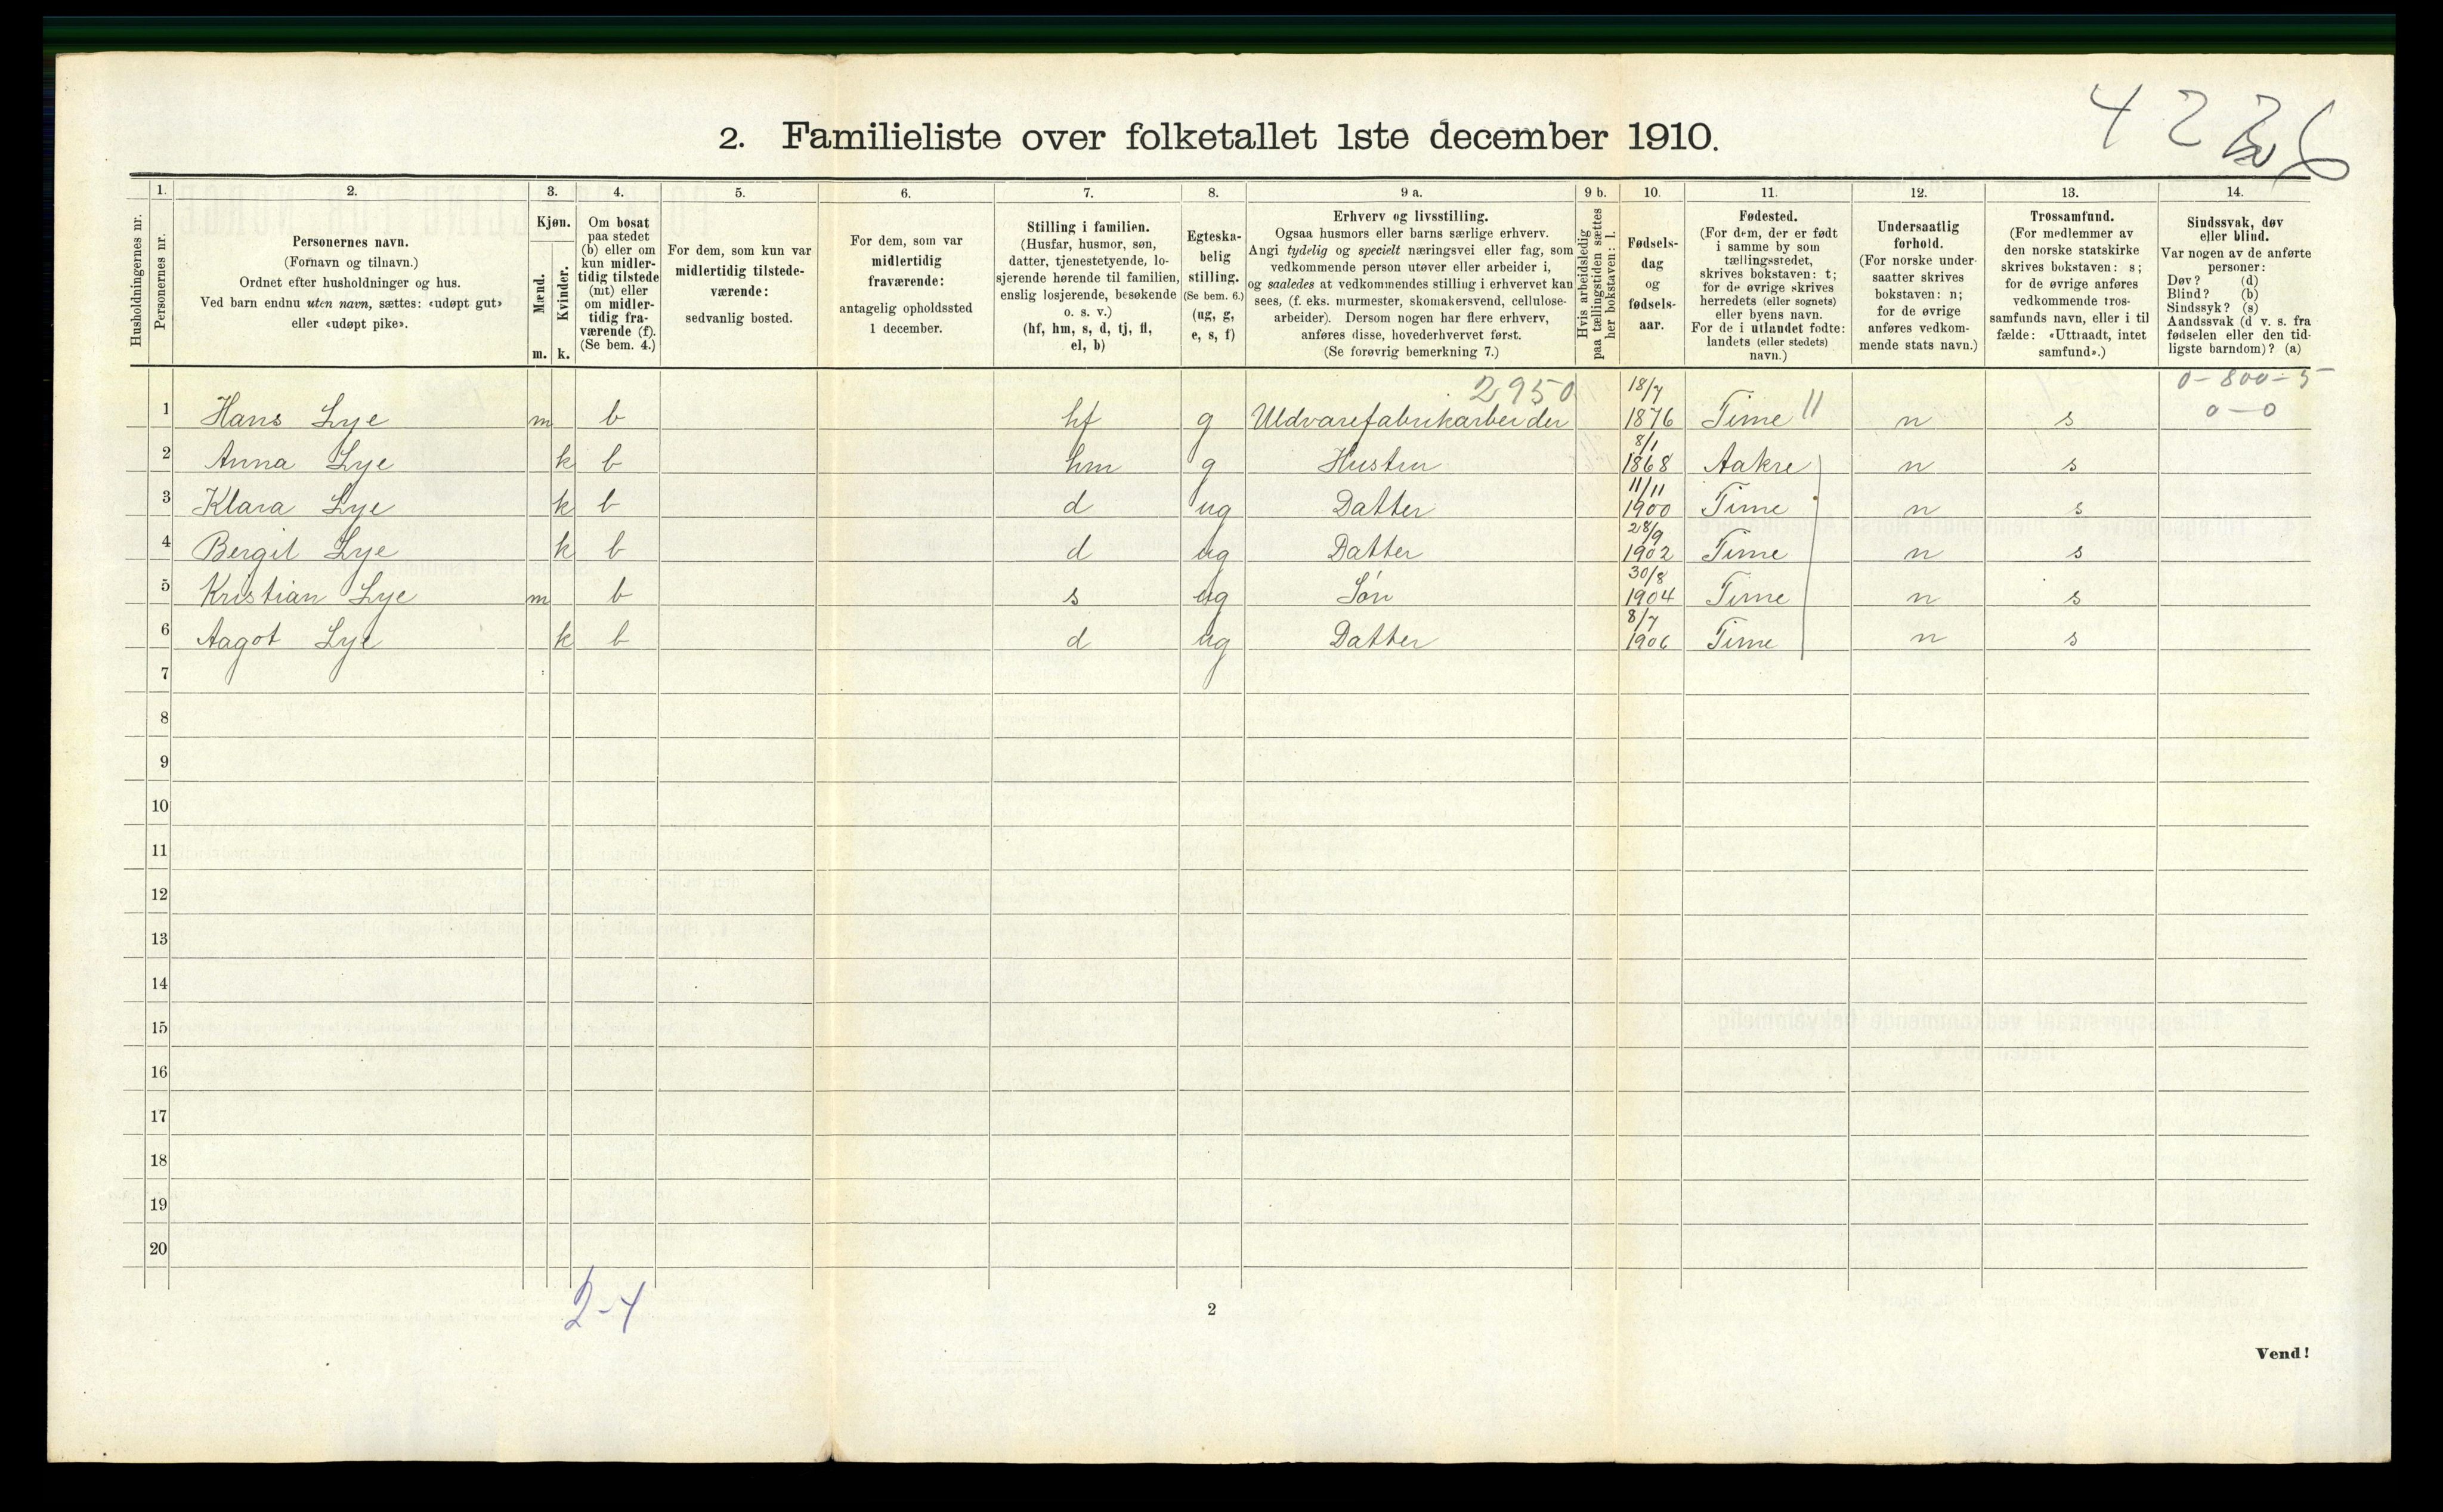 4 2 2 6
2. Familieliste over folketallet 1ste december 1910.
Husholdningernes nr.
1. Personernes nr.
2.
Personernes navn.
(Fornavn og tilnavn.)
Ordnet efter husholdninger og hus.
Ved barn endnu uten navn, sættes: «udøpt gut»
eller «udøpt pike».
3.
Kjøn.
Mænd.
Kvinder.
m. k.
4.
Om bosat
paa stedet
(b) eller om
kun midler-
tidig tilstede
(mt) eller
om midler-
tidig fra-
værende (f).
(Se bem. 4.)
5.
For dem, som kun var
midlertidig tilstede-
værende:
sedvanlig bosted.
6.
For dem, som var
midlertidig
fraværende:
antagelig opholdssted
1 december.
7.
Stilling i familien.
(Husfar, husmor, søn,
datter, tjenestetyende, lo-
sjerende hørende til familien,
enslig losjerende, besøkende
o. s. v.)
(hf, hm, s, d, tj, fl,
el, b)
8.
Egteska-
belig
stilling.
(Se bem. 6.)
(ug, g,
e, s, f)
9 a.
Erhverv og livsstilling.
Ogsaa husmors eller barns særlige erhverv.
Angi tydelig og specielt næringsvei eller fag, som
vedkommende person utøver eller arbeider i,
og saaledes at vedkommendes stilling i erhvervet kan
sees, (f. eks. murmester, skomakersvend, cellulose-
arbeider). Dersom nogen har flere erhverv,
anføres disse, hovederhvervet først.
(Se forøvrig bemerkning 7.)
9 b.
Hvis arbeidsledig
paa tællingstiden sættes
her bokstaven: l.
10.
Fødsels-
dag
og
fødsels-
aar.
11.
Fødested.
(For dem, der er født
i samme by som
tællingsstedet,
skrives bokstaven: t;
for de øvrige skrives
herredets (eller sognets)
eller byens navn.
For de i utlandet fødte:
landets (eller stedets)
navn.)
12.
Undersaatlig
forhold.
(For norske under-
saatter skrives
bokstaven: n;
for de øvrige
anføres vedkom-
mende stats navn.)
13.
Trossamfund.
(For medlemmer av
den norske statskirke
skrives bokstaven: s;
for de øvrige anføres
vedkommende tros-
samfunds navn, eller i til
fælde: «Uttraadt, intet
samfund».)
14.
Sindssvak, døv
eller blind.
Var nogen av de anførte
personer:
Døv? (d)
Blind? (b)
Sindssyk? (s)
Aandssvak (d v. s. fra
fødselen eller den tid-
ligste barndom)? (a)
2950 18/7 0-800-5
1 Hans Lye m b hf g Uldvarefabrikarbeider 1876 Time || n s 0-0
8/1
2 Anna Lye k b hm g Hustru 1868 Aakre n s
11/11
3 Klara Lye k b d ug Datter 1900 Time n s
28/9
4 Bergit Lye k b d ug Datter 1902 Time n s
30/8
5 Kristian Lye m b s ug Søn 1904 Time n s
8/7
6 Aagot Lye k b d ug Datter 1906 Time n s
7
8
9
10
11
12
13
14
15
16
17
18
19
20
2-4
2
Vend!